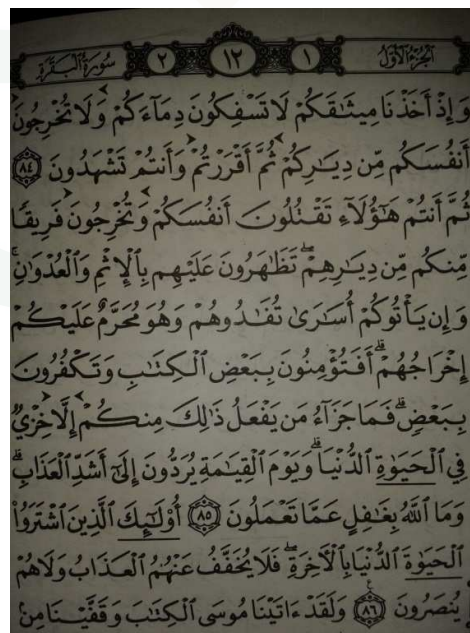 الجزء الأول ١ ١٣ ٢ سورة البقرة
وَإِذْ أَخَذْنَا مِيثَٰقَكُمْ لَا تَسْفِكُونَ دِمَآءَكُمْ وَلَا تُخْرِجُونَ
أَنفُسَكُم مِّن دِيَٰرِكُمْ ثُمَّ أَقْرَرْتُمْ وَأَنتُمْ تَشْهَدُونَ ٨٤
ثُمَّ أَنتُمْ هَٰٓؤُلَآءِ تَقْتُلُونَ أَنفُسَكُمْ وَتُخْرِجُونَ فَرِيقًا
مِّنكُم مِّن دِيَٰرِهِمْ تَظَّٰهَرُونَ عَلَيْهِم بِٱلْإِثْمِ وَٱلْعُدْوَٰنِ
وَإِن يَأْتُوكُمْ أُسَٰرَىٰ تُفَٰدُوهُمْ وَهُوَ مُحَرَّمٌ عَلَيْكُمْ
إِخْرَاجُهُمْ ۚ أَفَتُؤْمِنُونَ بِبَعْضِ ٱلْكِتَٰبِ وَتَكْفُرُونَ
بِبَعْضٍ ۚ فَمَا جَزَآءُ مَن يَفْعَلُ ذَٰلِكَ مِنكُمْ إِلَّا خِزْىٌ
فِى ٱلْحَيَوٰةِ ٱلدُّنْيَا ۖ وَيَوْمَ ٱلْقِيَٰمَةِ يُرَدُّونَ إِلَىٰٓ أَشَدِّ ٱلْعَذَابِ ۗ
وَمَا ٱللَّهُ بِغَٰفِلٍ عَمَّا تَعْمَلُونَ ٨٥ أُو۟لَٰٓئِكَ ٱلَّذِينَ ٱشْتَرَوُا۟
ٱلْحَيَوٰةَ ٱلدُّنْيَا بِٱلْءَاخِرَةِ ۖ فَلَا يُخَفَّفُ عَنْهُمُ ٱلْعَذَابُ وَلَا هُمْ
يُنصَرُونَ ٨٦ وَلَقَدْ ءَاتَيْنَا مُوسَى ٱلْكِتَٰبَ وَقَفَّيْنَا مِنۢ